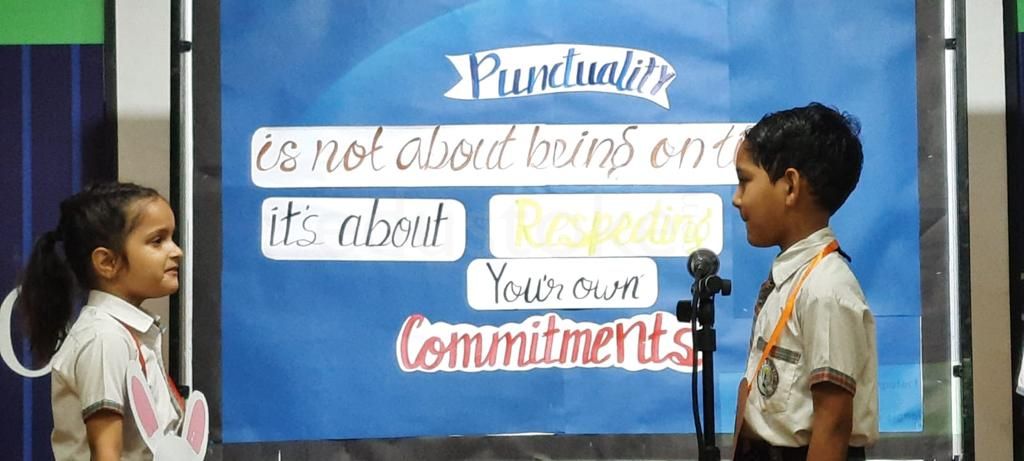 Punctuality
is not about being on ti
it's about Respecting
Your own
Commitments